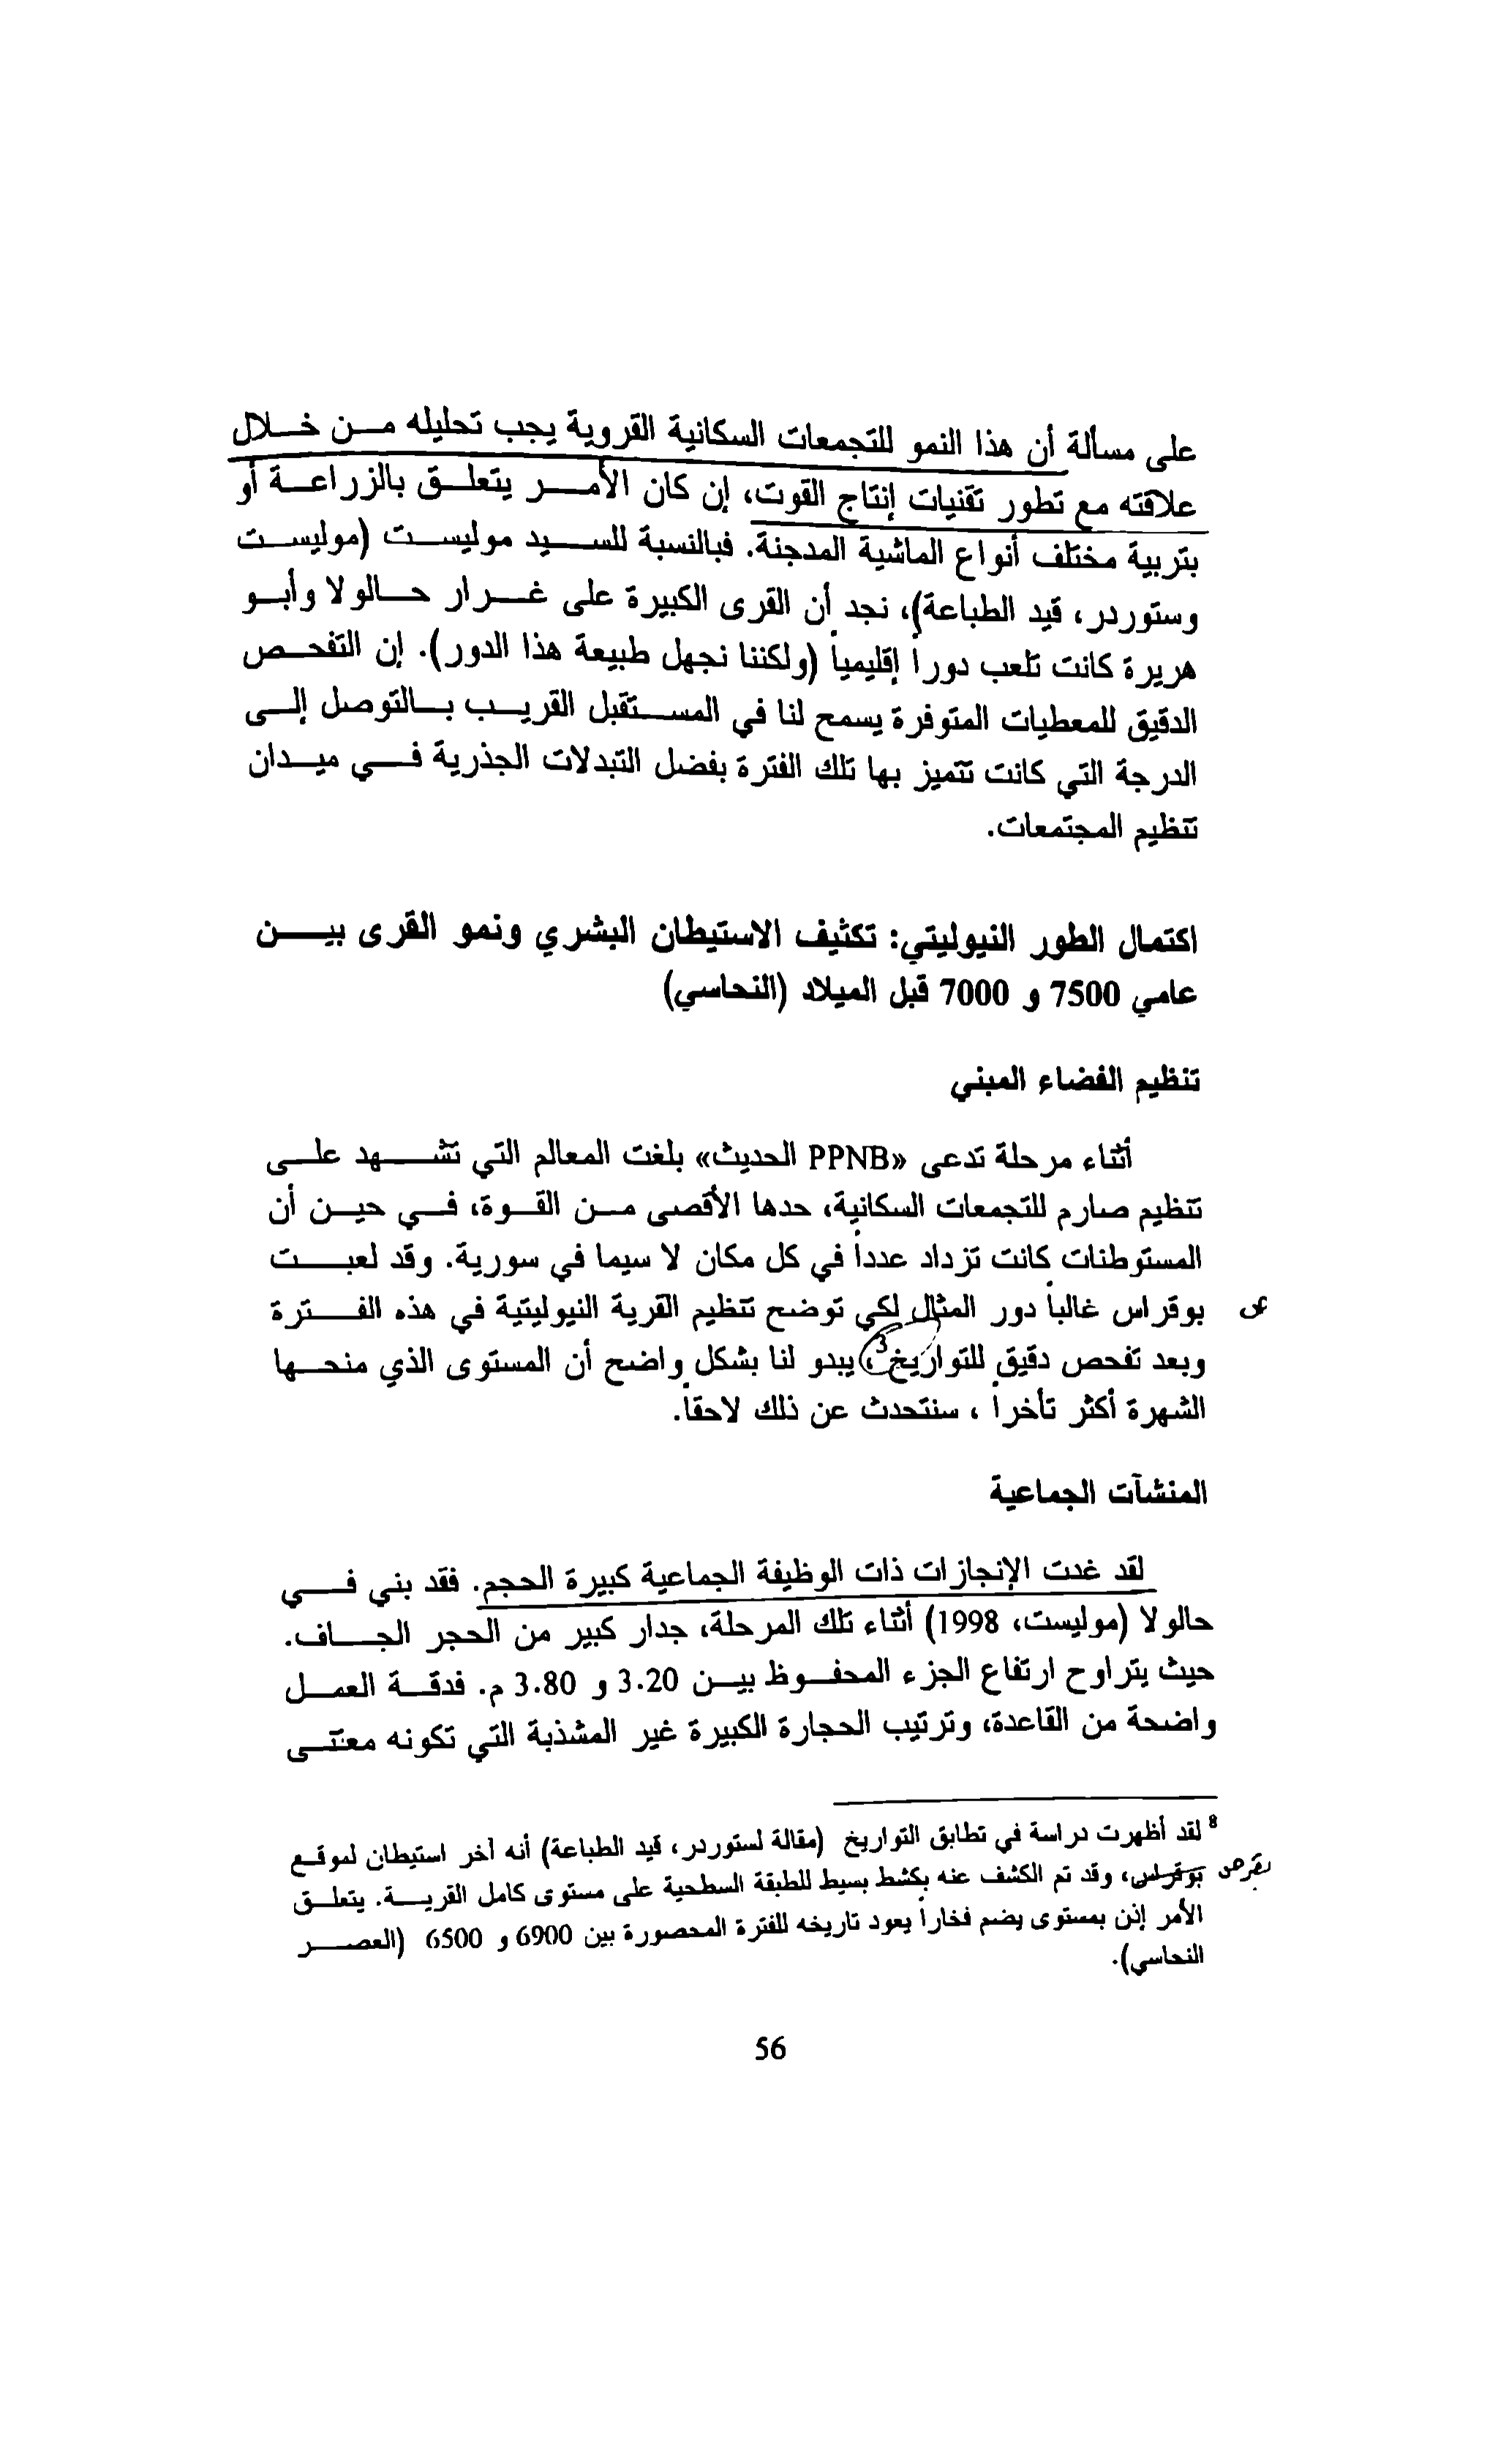 على مسألة أن هذا النمو للتجمعات السكانية القروية يجب تحليله من خلال
علاقته مع تطور تقنيات إنتاج القوت، إن كان الأمر يتعلق بالزراعة أو
بتربية مختلف أنواع الماشية المدجنة. فبالنسبة للسيد موليست (موليست
وستوردر، قيد الطباعة)، نجد أن القرى الكبيرة على غرار حالولا وأبو
هريرة كانت تلعب دوراً إقليمياً (ولكننا نجهل طبيعة هذا الدور). إن التفحص
الدقيق للمعطيات المتوفرة يسمح لنا في المستقبل القريب بالتوصل إلى
الدرجة التي كانت تتميز بها تلك الفترة بفضل التبدلات الجذرية في ميدان
تنظيم المجتمعات.
اكتمال الطور النيوليتي: تكثيف الاستيطان البشري ونمو القرى بين
عامي 7500 و 7000 قبل الميلاد (النحاسي)
تنظيم الفضاء المبني
أثناء مرحلة تدعى «PPNB الحديث» بلغت المعالم التي تشهد على
تنظيم صارم للتجمعات السكانية، حدها الأقصى من القوة، في حين أن
المستوطنات كانت تزداد عدداً في كل مكان لا سيما في سورية. وقد لعبت
بوقراس غالباً دور المثال لكي توضح تنظيم القرية النيوليتية في هذه الفترة
وبعد تفحص دقيق للتواريخ3، يبدو لنا بشكل واضح أن المستوى الذي منحها
الشهرة أكثر تأخراً ، سنتحدث عن ذلك لاحقاً.
المنشآت الجماعية
لقد غدت الإنجازات ذات الوظيفة الجماعية كبيرة الحجم. فقد بني في
حالولا (موليست، 1998) أثناء تلك المرحلة، جدار كبير من الحجر الجاف.
حيث يتراوح ارتفاع الجزء المحفوظ بين 3.20 و 3.80 م. فدقة العمل
واضحة من القاعدة، وترتيب الحجارة الكبيرة غير المشذبة التي تكونه معتنى
8 لقد أظهرت دراسة في تطابق التواريخ (مقالة لستوردر، قيد الطباعة) أنه آخر استيطان لموقع
بوقراس، وقد تم الكشف عنه بكشط بسيط للطبقة السطحية على مستوى كامل القرية. يتعلق
الأمر إذن بمستوى يضم فخاراً يعود تاريخه للفترة المحصورة بين 6900 و 6500 (العصر
النحاسي).
56